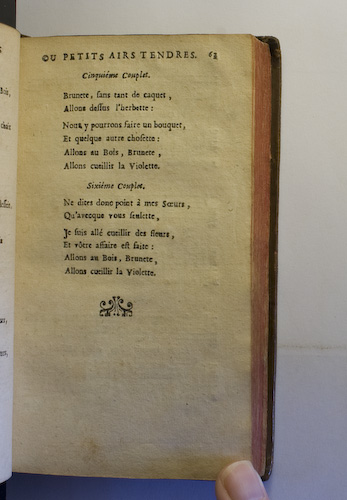 OU PETITS AIRS TENDRES. 63
Cinquiéme Couplet.
Brunete, sans tant de caquet,
Allons dessus l'herbette:
Nous y pourrons faire un bouquet,
Et quelque autre chosette:
Allons au Bois, Brunete,
Allons cueillir la Violette.
Sixiéme Couplet.
Ne dites donc point à mes Sœurs,
Qu'avecque vous seulette,
Je suis allé cueillir des fleurs,
Et vôtre affaire est faite:
Allons au Bois, Brunete,
Allons cueillir la Violette.